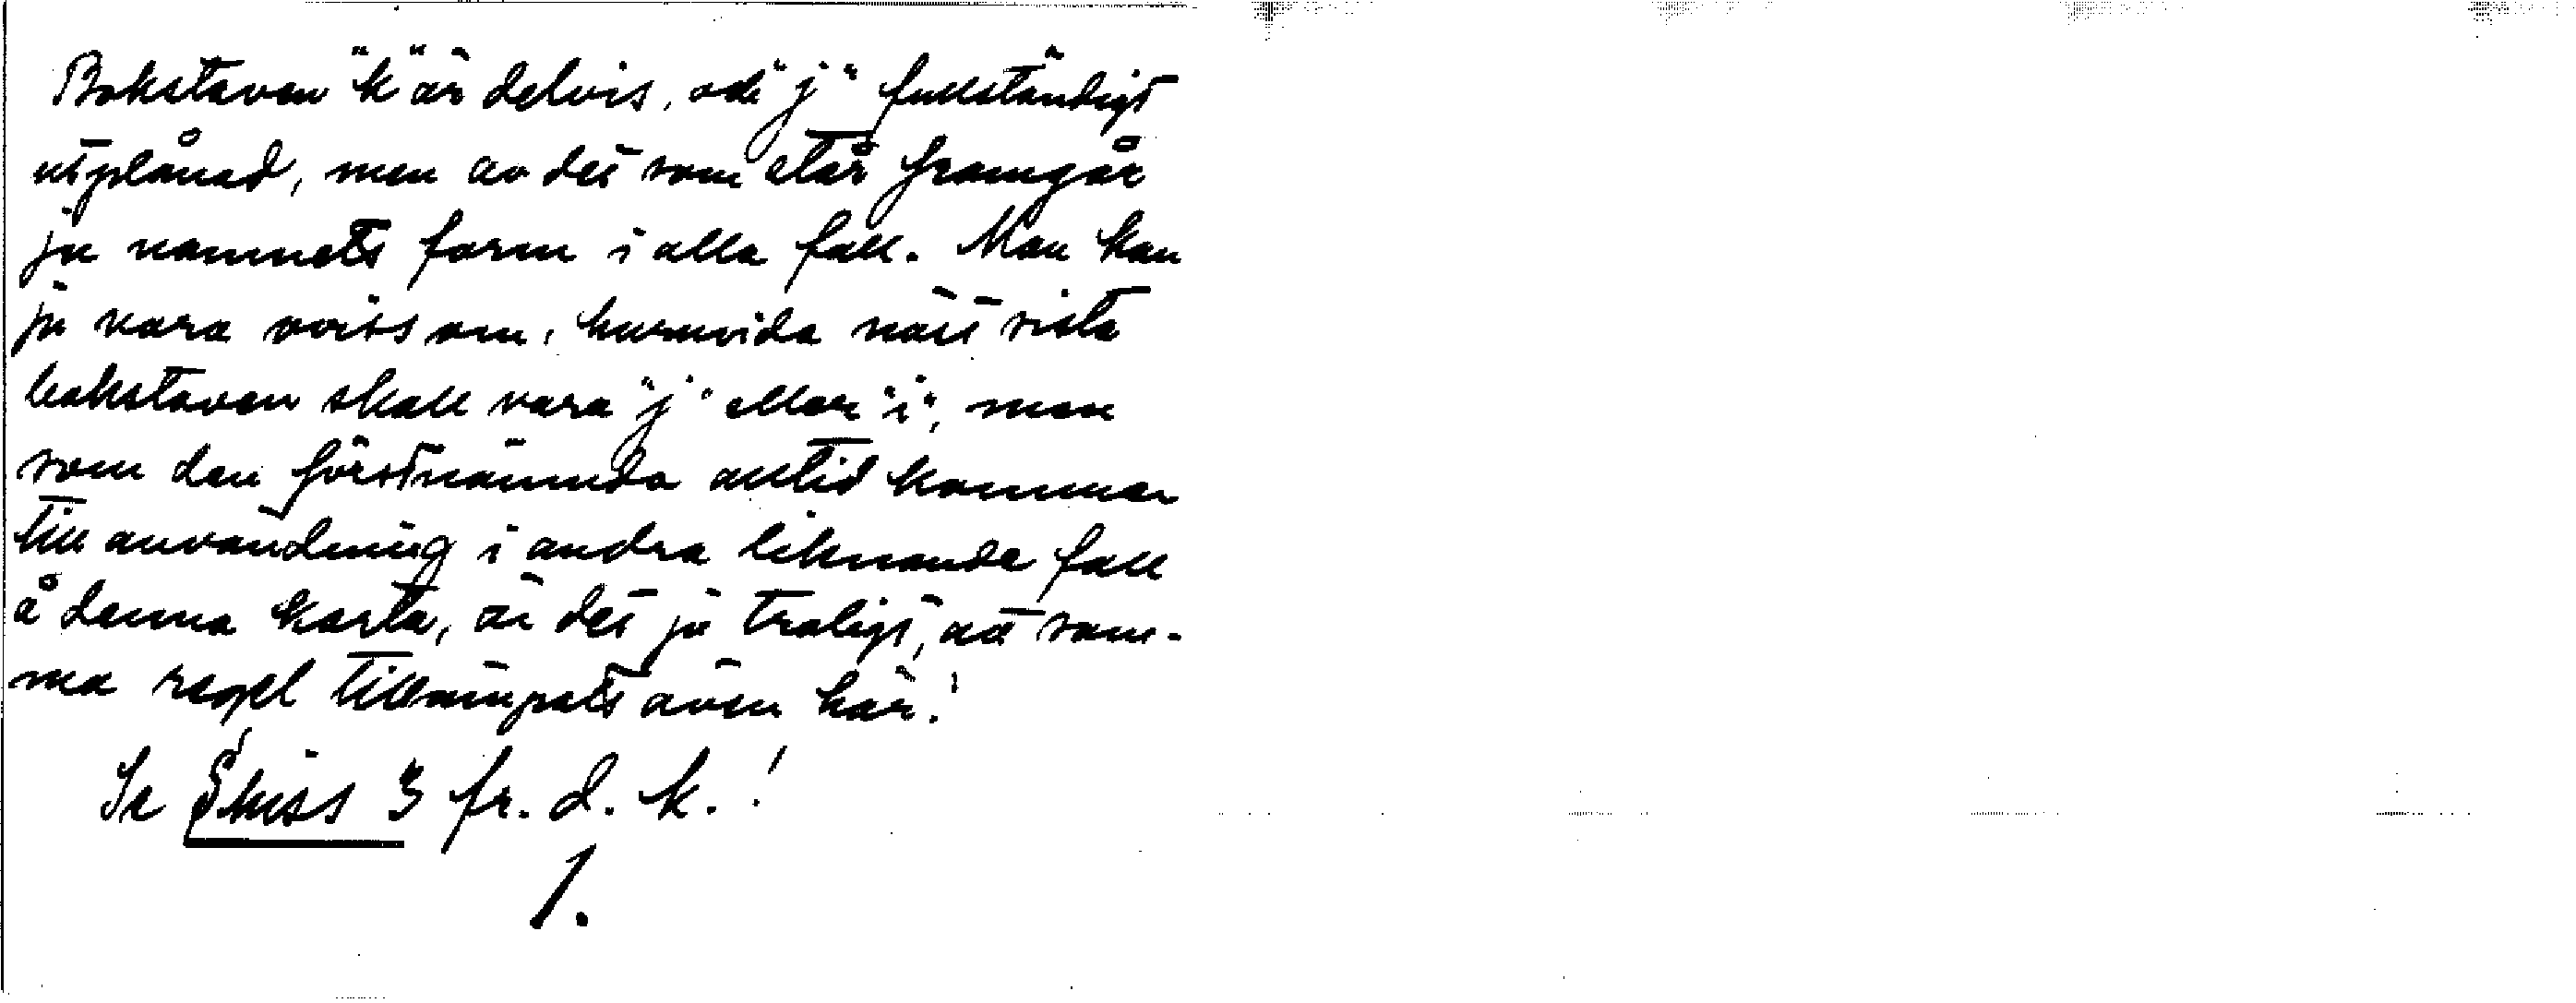 Bokstaven "k" är delvis, och "j" fullständigt
utplånad, men av det som står framgår
ju namnets form i alla fall. Man kan
ju vara oviss om, huruvida näst sista
bokstaven skall vara "j" eller "i", men
som den förstnämnda alltid kommer
till användning i andra liknande fall
å denna karta, är det ju troligt, att sam-
ma regel tillämpats även här!
Se Skiss 3 fr. d. k.!
1.